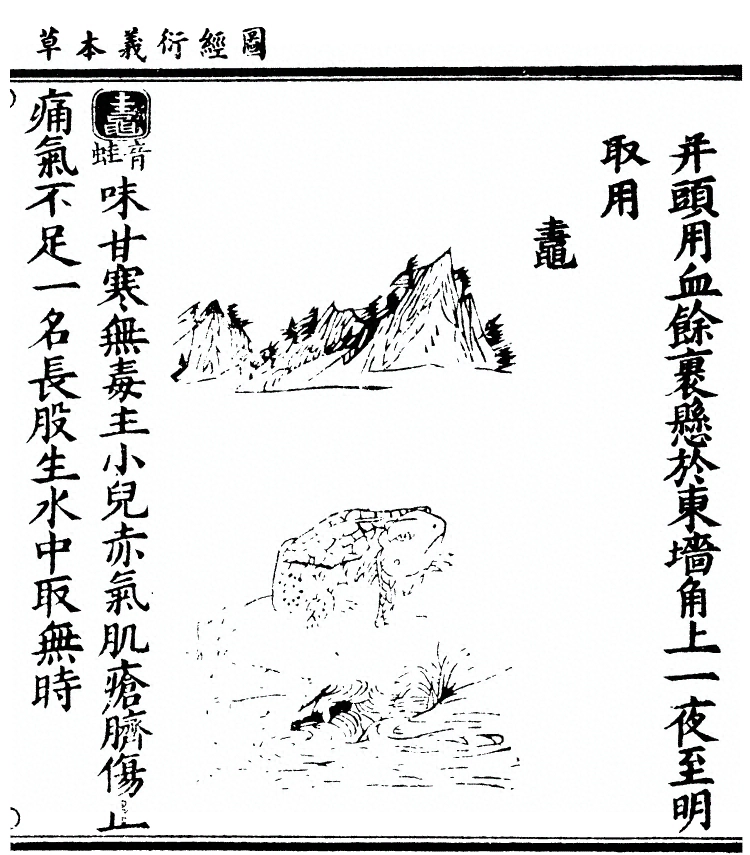 圖經衍義本草
并頭用血餘裹懸於東墻角上一夜至明
取用
鼃
鼃音蛙味甘寒無毒主小兒赤氣肌瘡臍傷止
痛氣不足一名長股生水中取無時